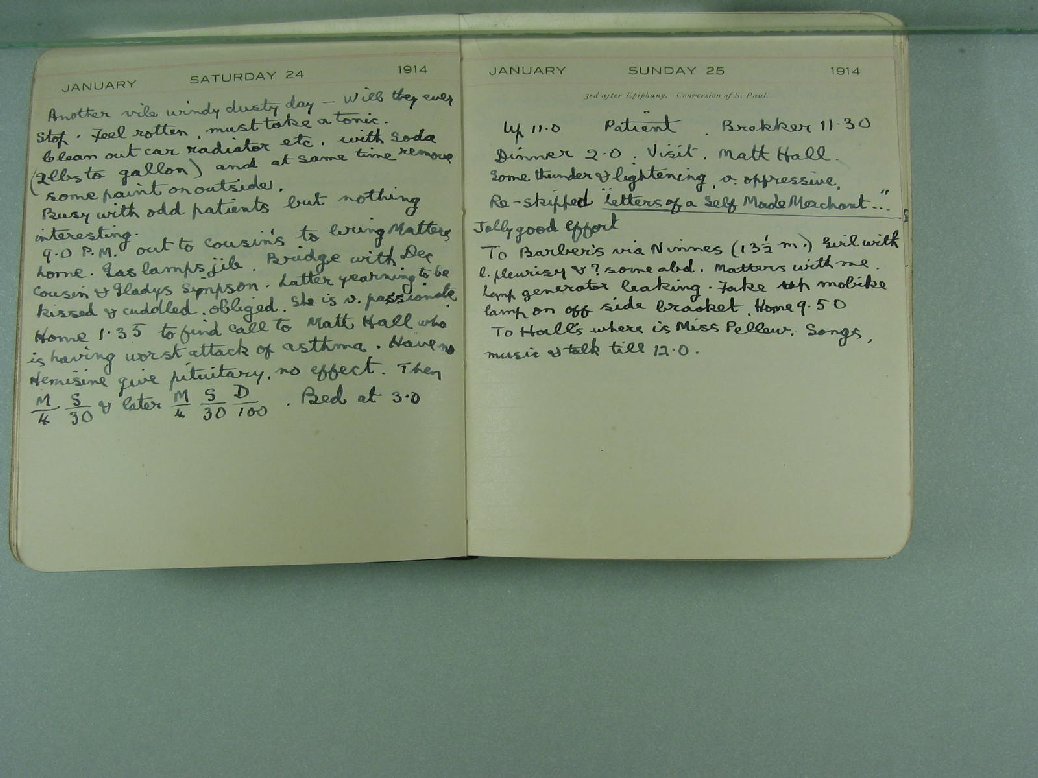 JANUARY SATURDAY 24 1914
Another vile windy dusty day – Will they ever
stop. Feel rotten, must take a tonic.
Clean out car radiator etc. with soda
(2lbs to gallon) and at same time remove
some paint on outside.
Busy with odd patients but nothing
interesting.
9.0 P.M. out to Cousin's to bring Matters
home. Gas lamps jib. Bridge with Dec
Cousin & Gladys Simpson. Latter yearning to be
kissed & cuddled. obliged. She is v. passionate
Home 1.35 to find call to Matt Hall who
is having worst attack of asthma. Have no
Hemisine give pituitary, no effect. Then
M/4 S/30 & later M/4 S/30 D/100. Bed at 3.0
JANUARY SUNDAY 25 1914
3rd after Epiphany. Conversion of S. Paul.
Up 11.0 Patient. Brekker 11.30
Dinner 2.0. Visit. Matt Hall.
Some thunder & lightening, v. oppressive.
Re-skipped "Letters of a Self Made Merchant..."
Jolly good effort
To Barber's via Ninnes (13½ m.) Girl with
l. pleurisy & ? some abd. Matters with me.
Lamp generator leaking. Take mobike
lamp on off side bracket. Home 9.50
To Hall's where is Miss Pellew. Songs,
music & talk till 12.0.